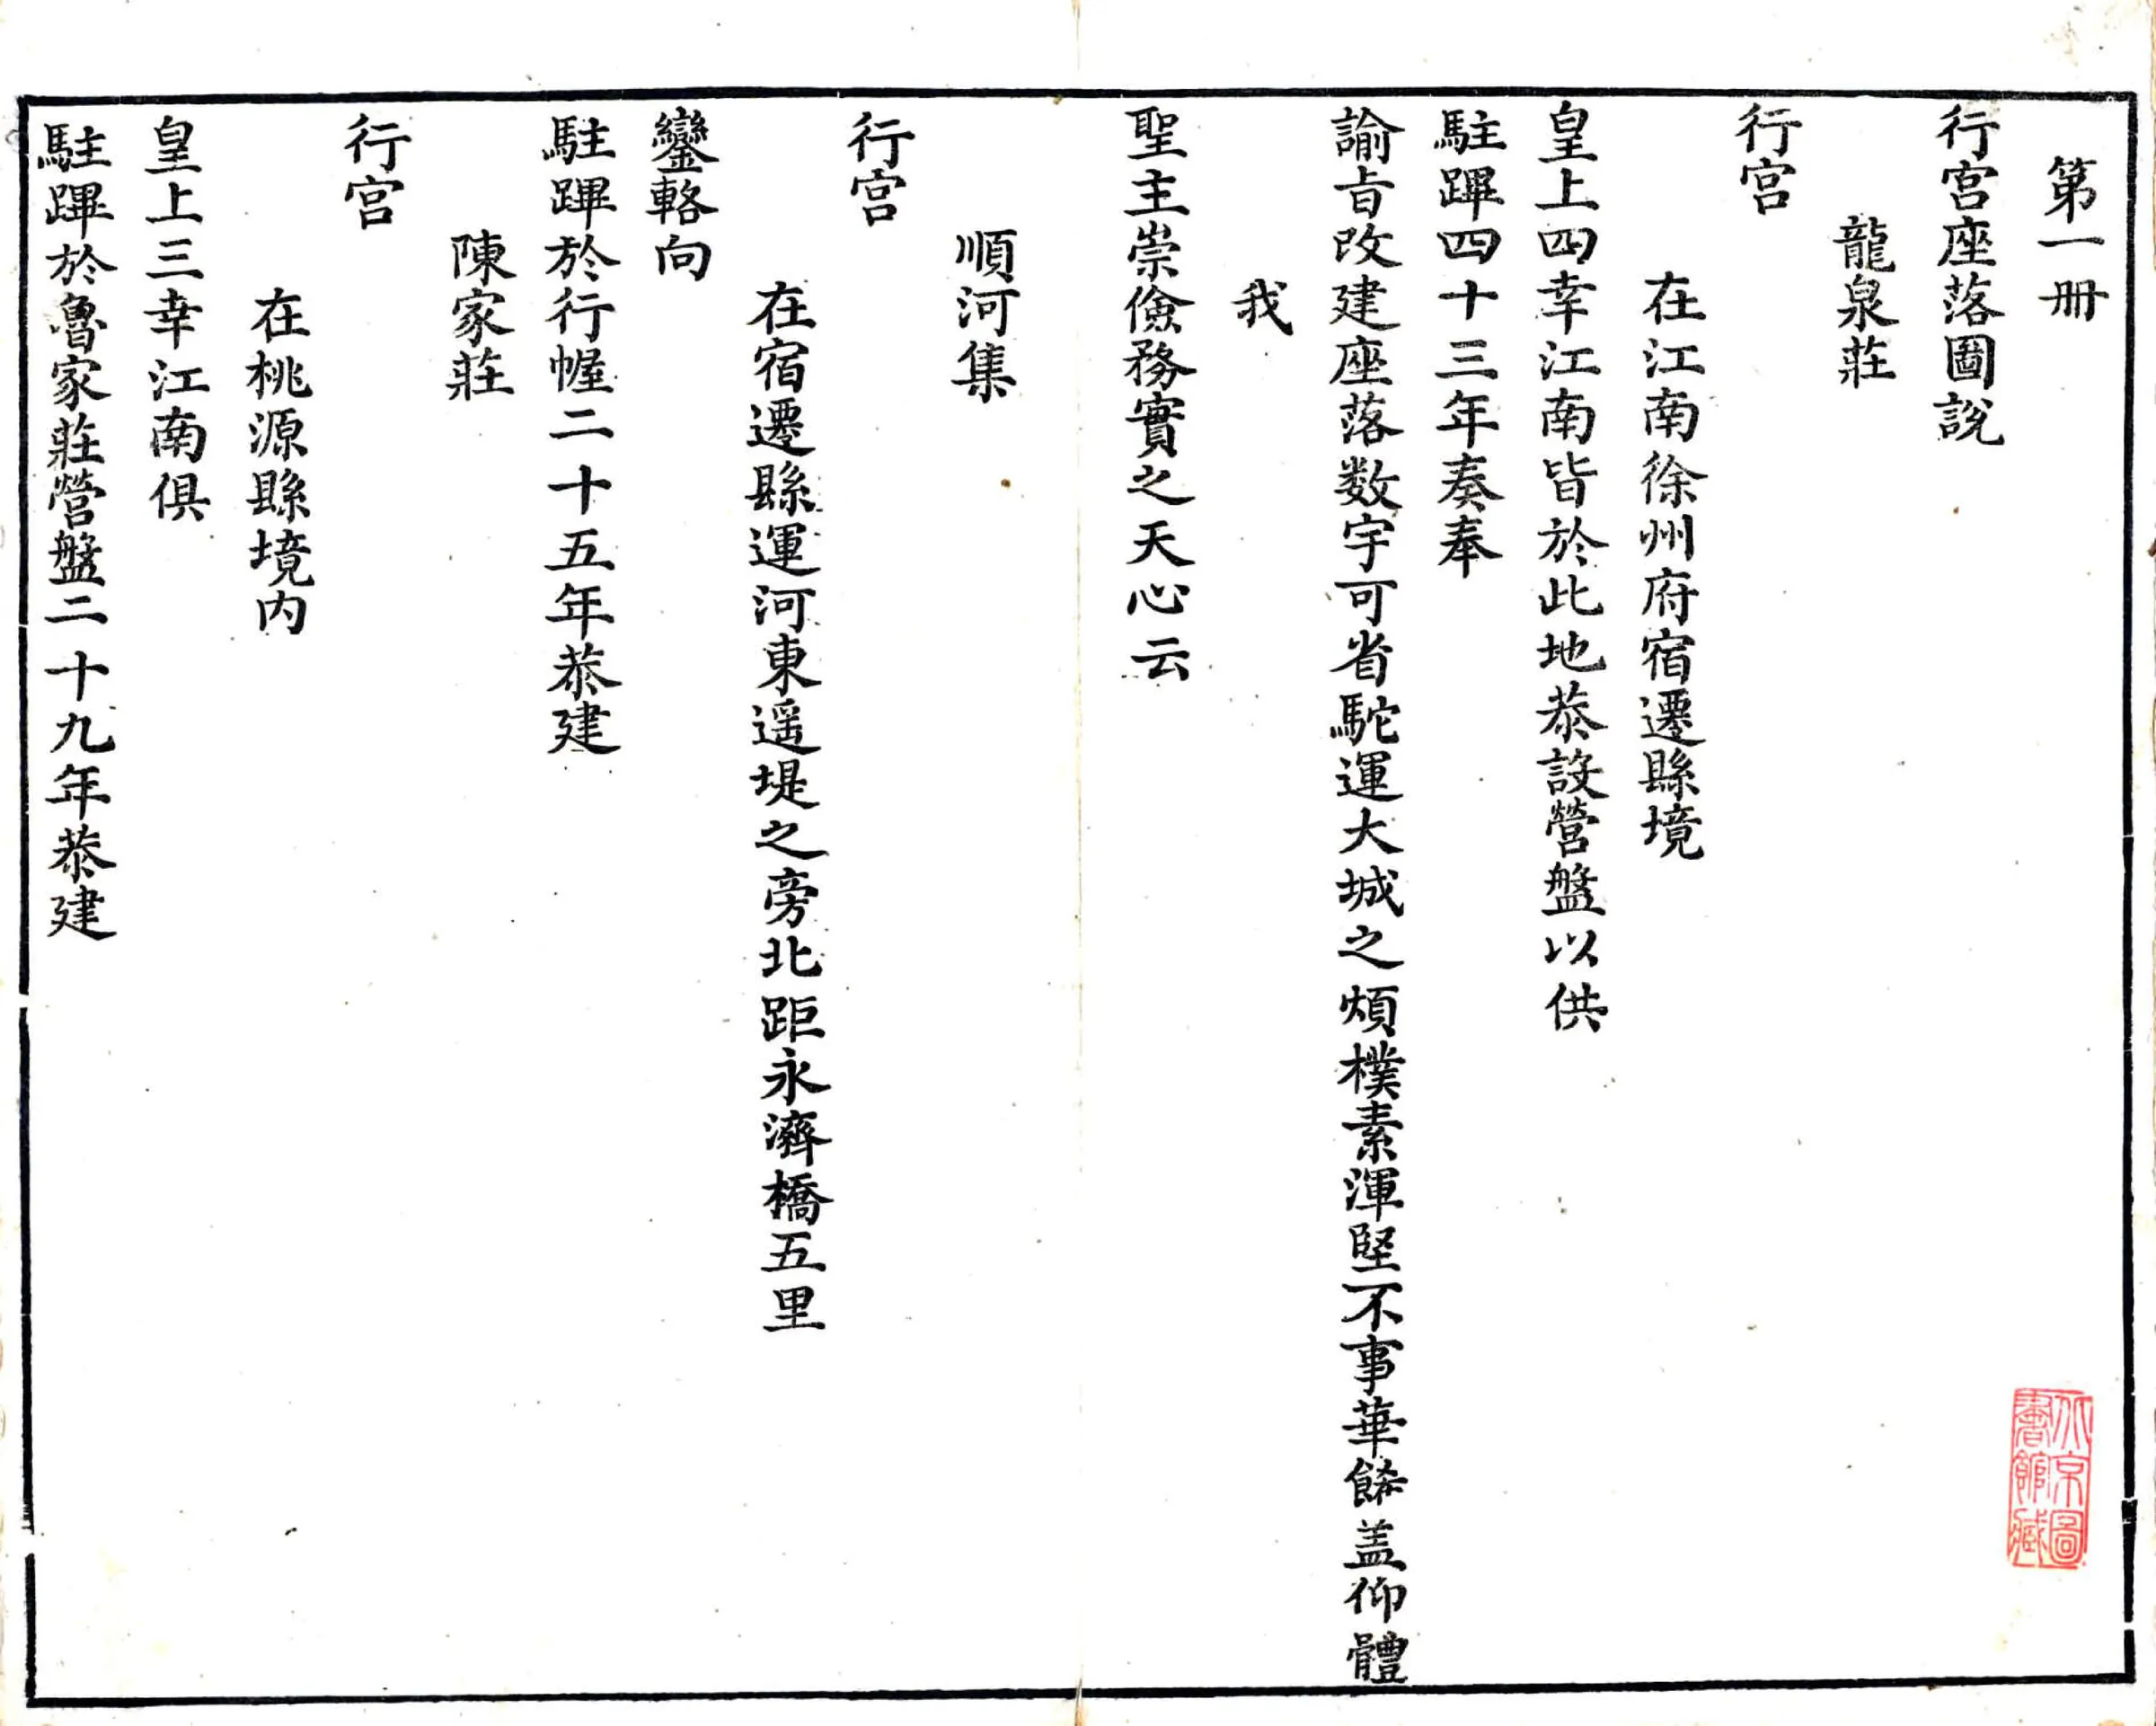 第一冊
行宮座落圖說
龍泉莊
行宮
在江南徐州府宿遷縣境
皇上四幸江南皆於此地恭設營盤以供
駐蹕四十三年奏奉
諭旨改建座落数宇可省駝運大城之煩樸素渾堅不事華餙盖仰體
我
聖主崇儉務實之天心云
順河集
行宮
在宿遷縣運河東遥堤之旁北距永濟橋五里
鑾輅向
駐蹕於行幄二十五年恭建
陳家莊
行宮
在桃源縣境内
皇上三幸江南俱
駐蹕於魯家莊營盤二十九年恭建
北京圖
書館藏